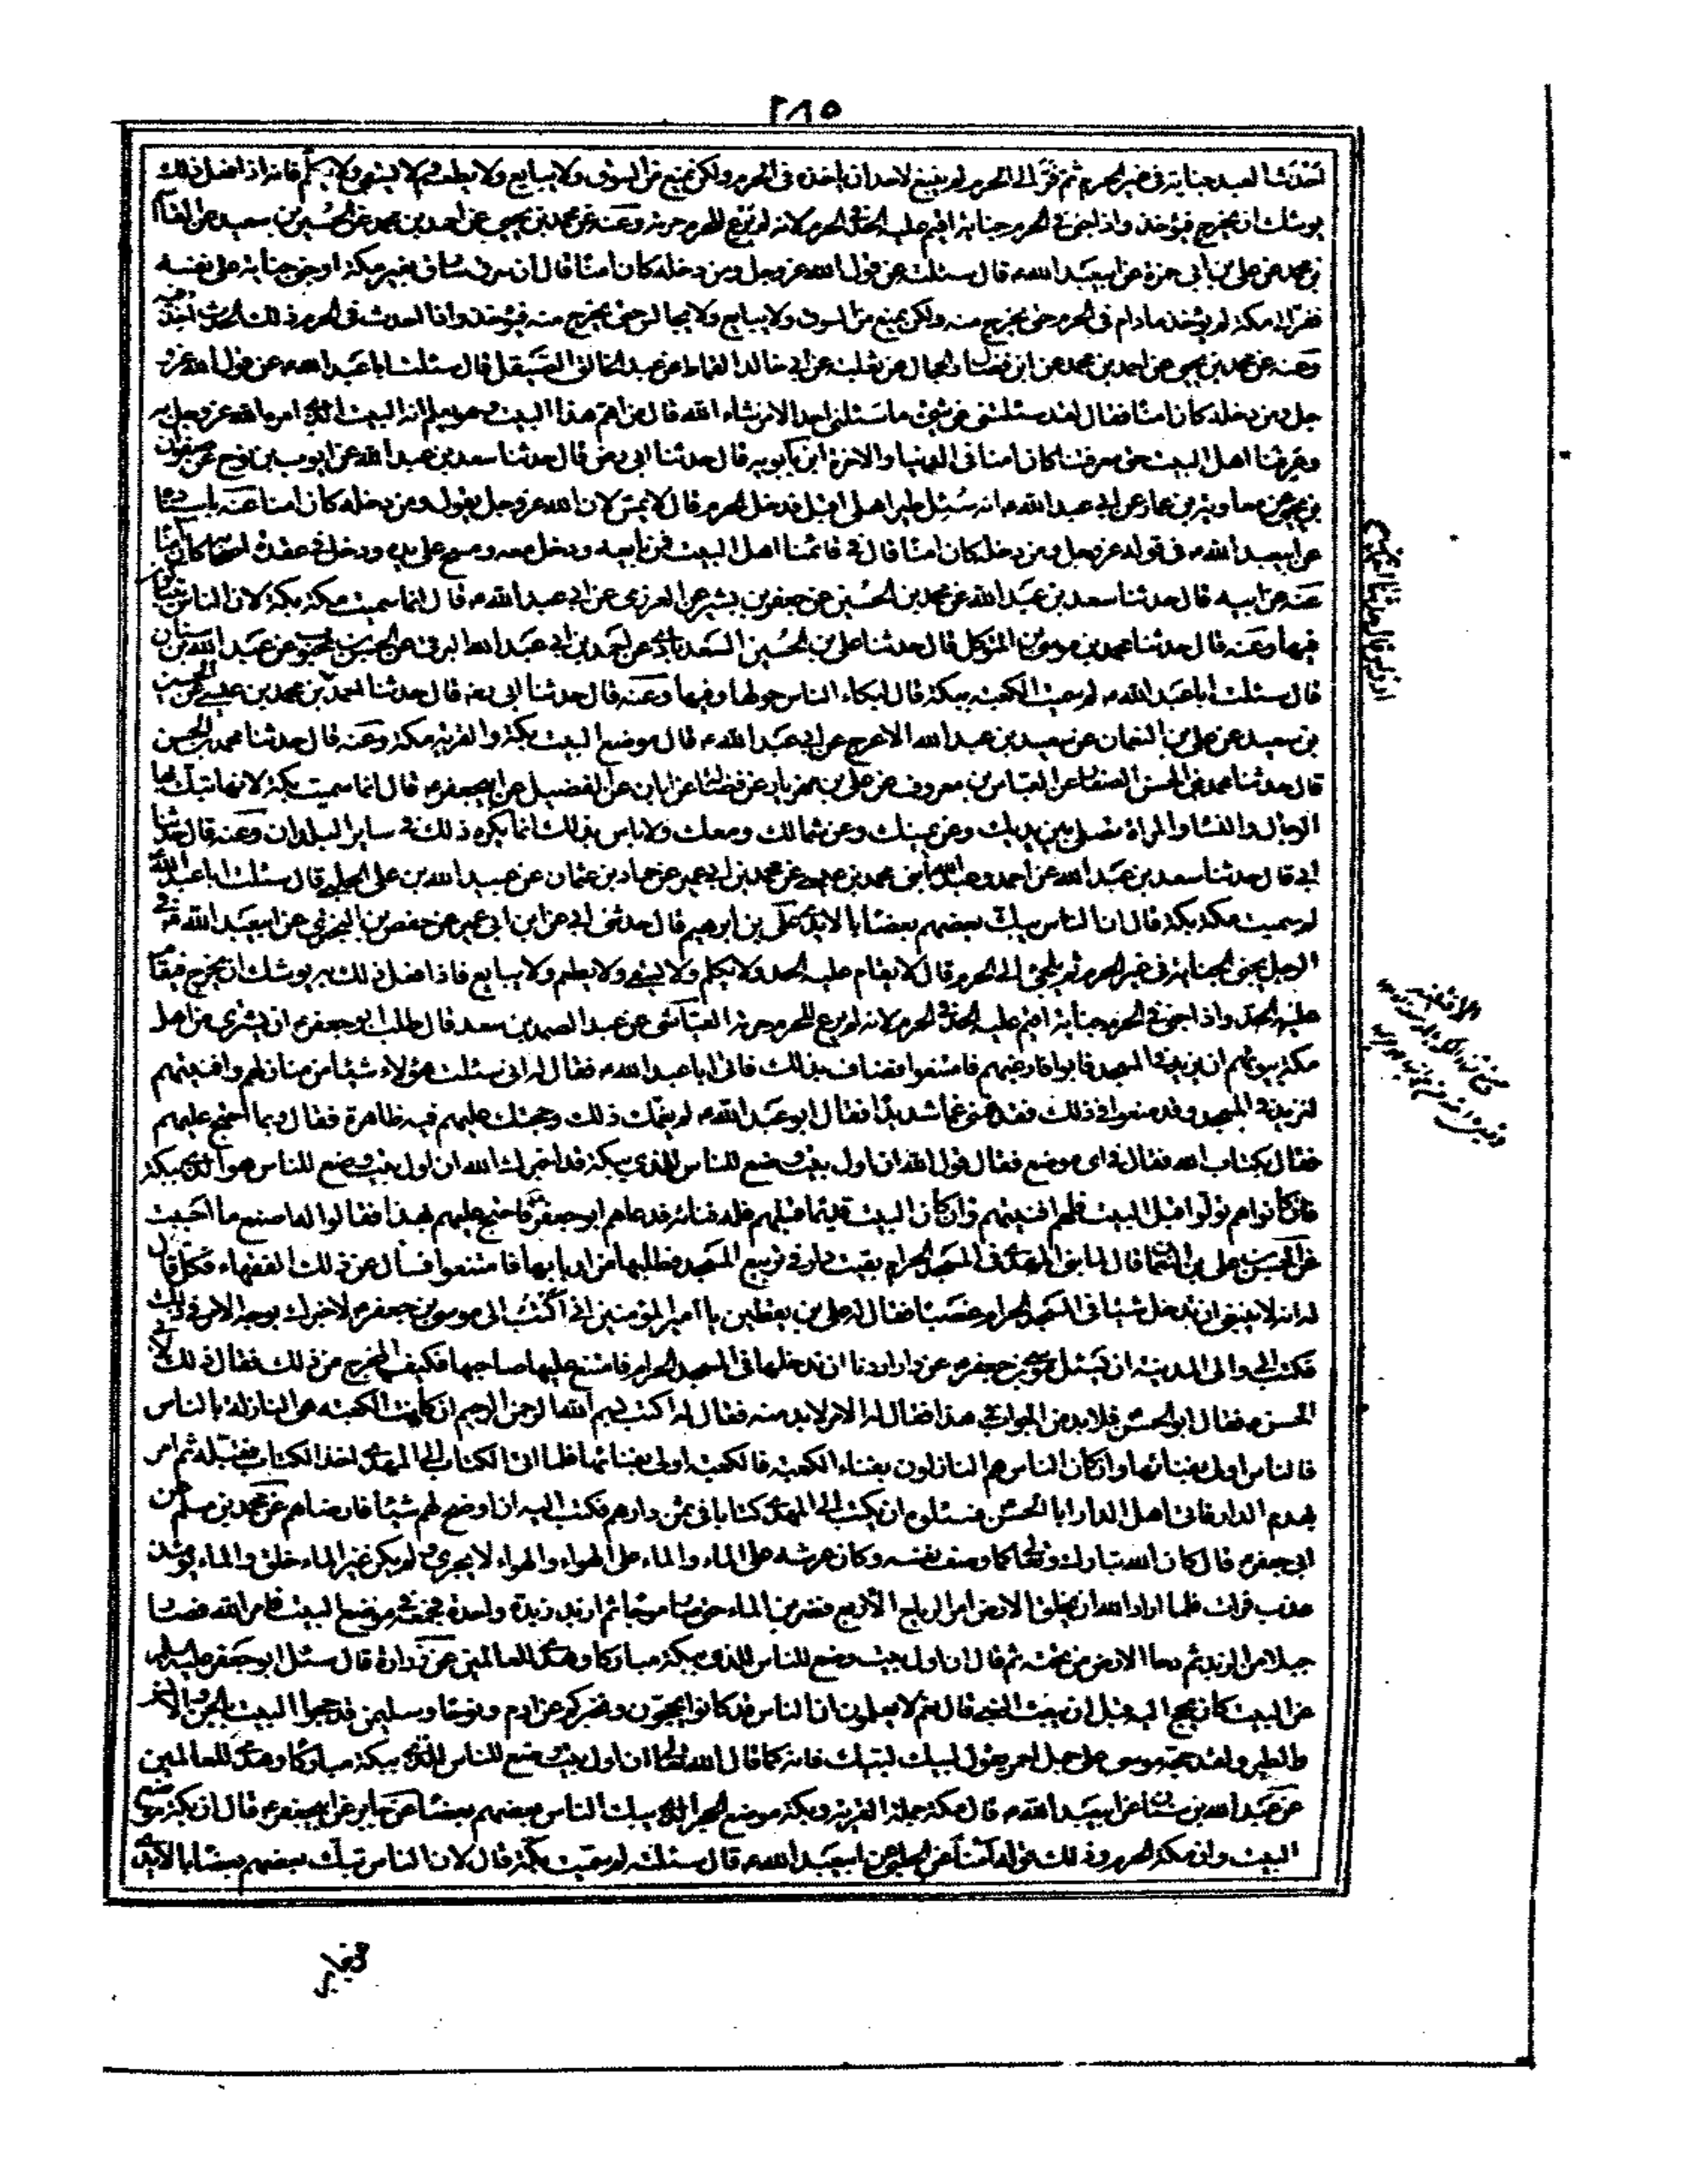 ٢٨٥
احدث العبد جناية فى غير الحرم ثم فر الى الحرم لم ينبغ لاحد ان ياخذه فى الحرم ولكن يمنع من السوق ولا يبايع ولا يطعم ولا يسقى ولا يكلم فانه اذا فعل ذلك
يوشك ان يخرج فيؤخذ واذا جنى فى الحرم جناية اقيم عليه الحد فى الحرم لانه لم يرع للحرم حرمة وعنه عن محمد بن يحيى عن احمد بن محمد عن الحسين بن سعيد عن القاسم
بن محمد عن على بن ابى حمزة عن ابيعبد الله ع قال سئلته عن قول الله عز وجل ومن دخله كان امنا قال ان سرق سارق بغير مكة او جنى جناية على نفسه
ففر الى مكة لم يؤخذ ما دام فى الحرم حتى يخرج منه ولكن يمنع من السوق ولا يبايع ولا يجالس حتى يخرج منه فيؤخذ واذا احدث فى الحرم ذلك الحدث اخذ فيه
وعنه عن محمد بن يحيى عن احمد بن محمد عن ابن فضال عن ثعلبة عن ابى خالد القماط عن عبد الخالق الصيقل قال سئلت ابا عبد الله ع عن قول الله عز و
جل ومن دخله كان امنا فقال لقد سئلتنى عن شئ ما سئلنى احد الا من شاء الله قال من ام هذا البيت وهو يعلم انه البيت الذى امره الله عز وجل به
وعرفنا اهل البيت حق معرفتنا كان امنا فى الدنيا والاخرة ابن بابويه قال حدثنا ابى رض قال حدثنا سعد بن عبد الله عن ايوب بن نوح عن صفوان
بن يحيى عن معاوية بن عمار عن ابى عبد الله ع انه سئل طير اهلى اقبل فدخل الحرم قال لا يمس لان الله عز وجل يقول ومن دخله كان امنا عنه باسناده
عن ابيعبد الله ع فى قوله عز وجل ومن دخله كان امنا قال فى قائمنا اهل البيت فمن بايعه ودخل معه ومسح على يده ودخل فى عقد اصحابه كان امنا
عنه عن ابيه قال حدثنا سعد بن عبد الله عن محمد بن الحسين عن جعفر بن بشير عن العرزمى عن ابى عبد الله ع قال انما سميت مكة بكة لان الناس يتباكون
فيها وعنه قال حدثنا محمد بن موسى بن المتوكل قال حدثنا على بن الحسين السعدابادى عن احمد بن ابى عبد الله البرقى عن الحسن بن محبوب عن عبد الله بن سنان
قال سئلت ابا عبد الله ع لم سميت الكعبة ببكة قال لبكاء الناس حولها وفيها وعنه قال حدثنا ابى رضه قال حدثنا احمد بن محمد بن عيسى عن الحسين
بن سعيد عن على بن النعمان عن سعيد بن عبد الله الاعرج عن ابى عبد الله ع قال موضع البيت بكة والقرية مكة وعنه قال حدثنا محمد بن الحسن
قال حدثنا محمد بن الحسن الصفار عن العباس بن معروف عن على بن مهزيار عن فضالة عن ابان عن الفضيل عن ابيجعفر ع قال انما سميت بكة لانها تبتك بها
الرجال والنساء والمراة تصلى بين يديك وعن يمينك وعن شمالك ومعك ولا باس بذلك انما يكره ذلك فى ساير البلدان وعنه قال حدثنا
ابى قال حدثنا سعد بن عبد الله عن احمد وعبد الله ابنى محمد بن عيسى عن محمد بن ابى عمير عن حماد بن عثمان عن عبيد الله بن على الحلبى قال سئلت ابا عبد الله
لم سميت مكة بكة قال لان الناس يبك بعضهم بعضا بالايدى على بن ابرهيم قال حدثنى ابى عن ابن ابى عمير عن حفص بن البخترى عن ابيعبد الله ع فى
الرجل يجنى الجناية فى غير الحرم ثم يلجئ الى الحرم قال لا يقام عليه الحد ولا يكلم ولا يسقى ولا يطعم ولا يبايع فاذا فعل ذلك به يوشك ان يخرج فيقام
عليه الحد واذا جنى فى الحرم جناية اقيم عليه الحد فى الحرم لانه لم يرع للحرم حرمة العياشى عن عبد الصمد بن سعد قال طلب ابو جعفر ان يشترى من اهل
مكة بيوتهم ان يزيد فى المسجد فابوا فارغبهم فامتنعوا فضاق بذلك فاتى ابا عبد الله ع فقال له انى سئلت هؤلاء شيئا من منازلهم وافنيتهم
لنزيد فى المسجد وقد منعوا فى ذلك فقد غمنى غما شديدا فقال ابو عبد الله ع لم يغمك ذلك وحجتك عليهم فيه ظاهرة فقال وبما احتج عليهم
فقال بكتاب الله فقال فى اى موضع فقال قول الله ان اول بيت وضع للناس للذى ببكة قد اخبرك الله ان اول بيت وضع للناس هو الذى ببكة
فان كانوا هم تولوا قبل البيت فلهم افنيتهم وان كان البيت قديما قبلهم فله فنائه فدعاهم ابو جعفر فاحتج عليهم بهذا فقالوا له اصنع ما احببت
عن الحسن بن على بن النعمان قال لما بنى المهدى فى المسجد الحرام بقيت دار فى تربيع المسجد فطلبها من اربابها فامتنعوا فسأل عن ذلك الفقهاء فكل قال
له انه لا ينبغى ان تدخل شيئا فى المسجد الحرام غصبا فقال له على بن يقطين يا امير المؤمنين انى اكتب الى موسى بن جعفر ع لاخبرك بوجه الامر فى ذلك
فكتب الى والى المدينة ان يسئل موسى بن جعفر ع عن دار اردنا ان ندخلها فى المسجد الحرام فامتنع عليها صاحبها فكيف المخرج من ذلك فقال ذلك لابى
الحسن ع فقال ابو الحسن فلا بد من الجواب فى هذا فقال له الامر لابد منه فقال له اكتب بسم الله الرحمن الرحيم ان كانت الكعبة هى النازلة بالناس
فالناس اولى بفنائها وان كان الناس هم النازلون بفناء الكعبة فالكعبة اولى بفنائها فلما اتى الكتاب الى المهدى اخذ الكتاب فقبله ثم امر
بهدم الدار فاتى اهل الدار ابا الحسن فسئلوه ان يكتب لهم الى المهدى كتابا فى ثمن دارهم فكتب اليه ان ارضخ لهم شيئا فارضاهم عن محمد بن مسلم عن
ابى جعفر ع قال كان الله تبارك وتعالى كما وصف نفسه وكان عرشه على الماء والماء على الهواء والهواء لا يجرى ولم يكن غير الماء خلق والماء يومئذ
عذب فرات فلما اراد الله ان يخلق الارض امر الرياح الاربع فضربن الماء حتى صار موجا ثم ازبد زبدة واحدة فجمعه فى موضع البيت فامر الله فصار
جبلا من الزبد ثم دحا الارض من تحته ثم قال ان اول بيت وضع للناس للذى ببكة مباركا وهدى للعالمين عن زرارة قال سئل ابو جعفر عليه السلم
عن البيت كان يحج اليه قبل ان يبعث النبى قال نعم لا يعلمون ان الناس قد كانوا يحجون ونخبركم عن ادم ونوحا وسليمن قد حجوا البيت بالجن والانس
والطير ولقد حجه موسى على جمل احمر يقول لبيك لبيك فانه كما قال الله تعالى ان اول بيت وضع للناس للذى ببكة مباركا وهدى للعالمين
عن عبد الله بن سنان عن ابيعبد الله ع قال مكة جملة القرية وبكة موضع الحجر الذى يبك الناس بعضهم بعضا عن جابر عن ابيجعفر ع قال ان بكة موضع
البيت وان مكة الحرم وذلك قوله امنا عن الحلبى عن ابيعبد الله ع قال سئلته لم سميت بكة قال لان الناس تبك بعضهم بعضا بالايدى